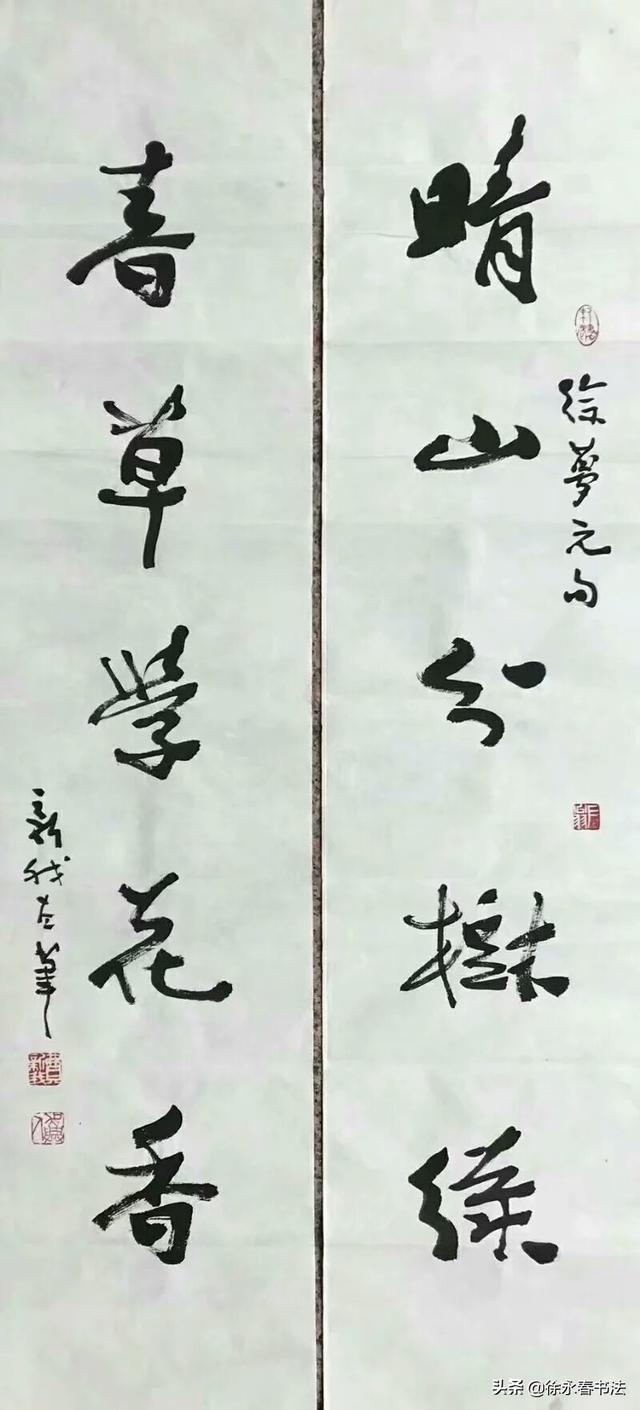 徐夢元句
晴山分樹綠
春草學花香
新我左筆
头条 @徐永春书法